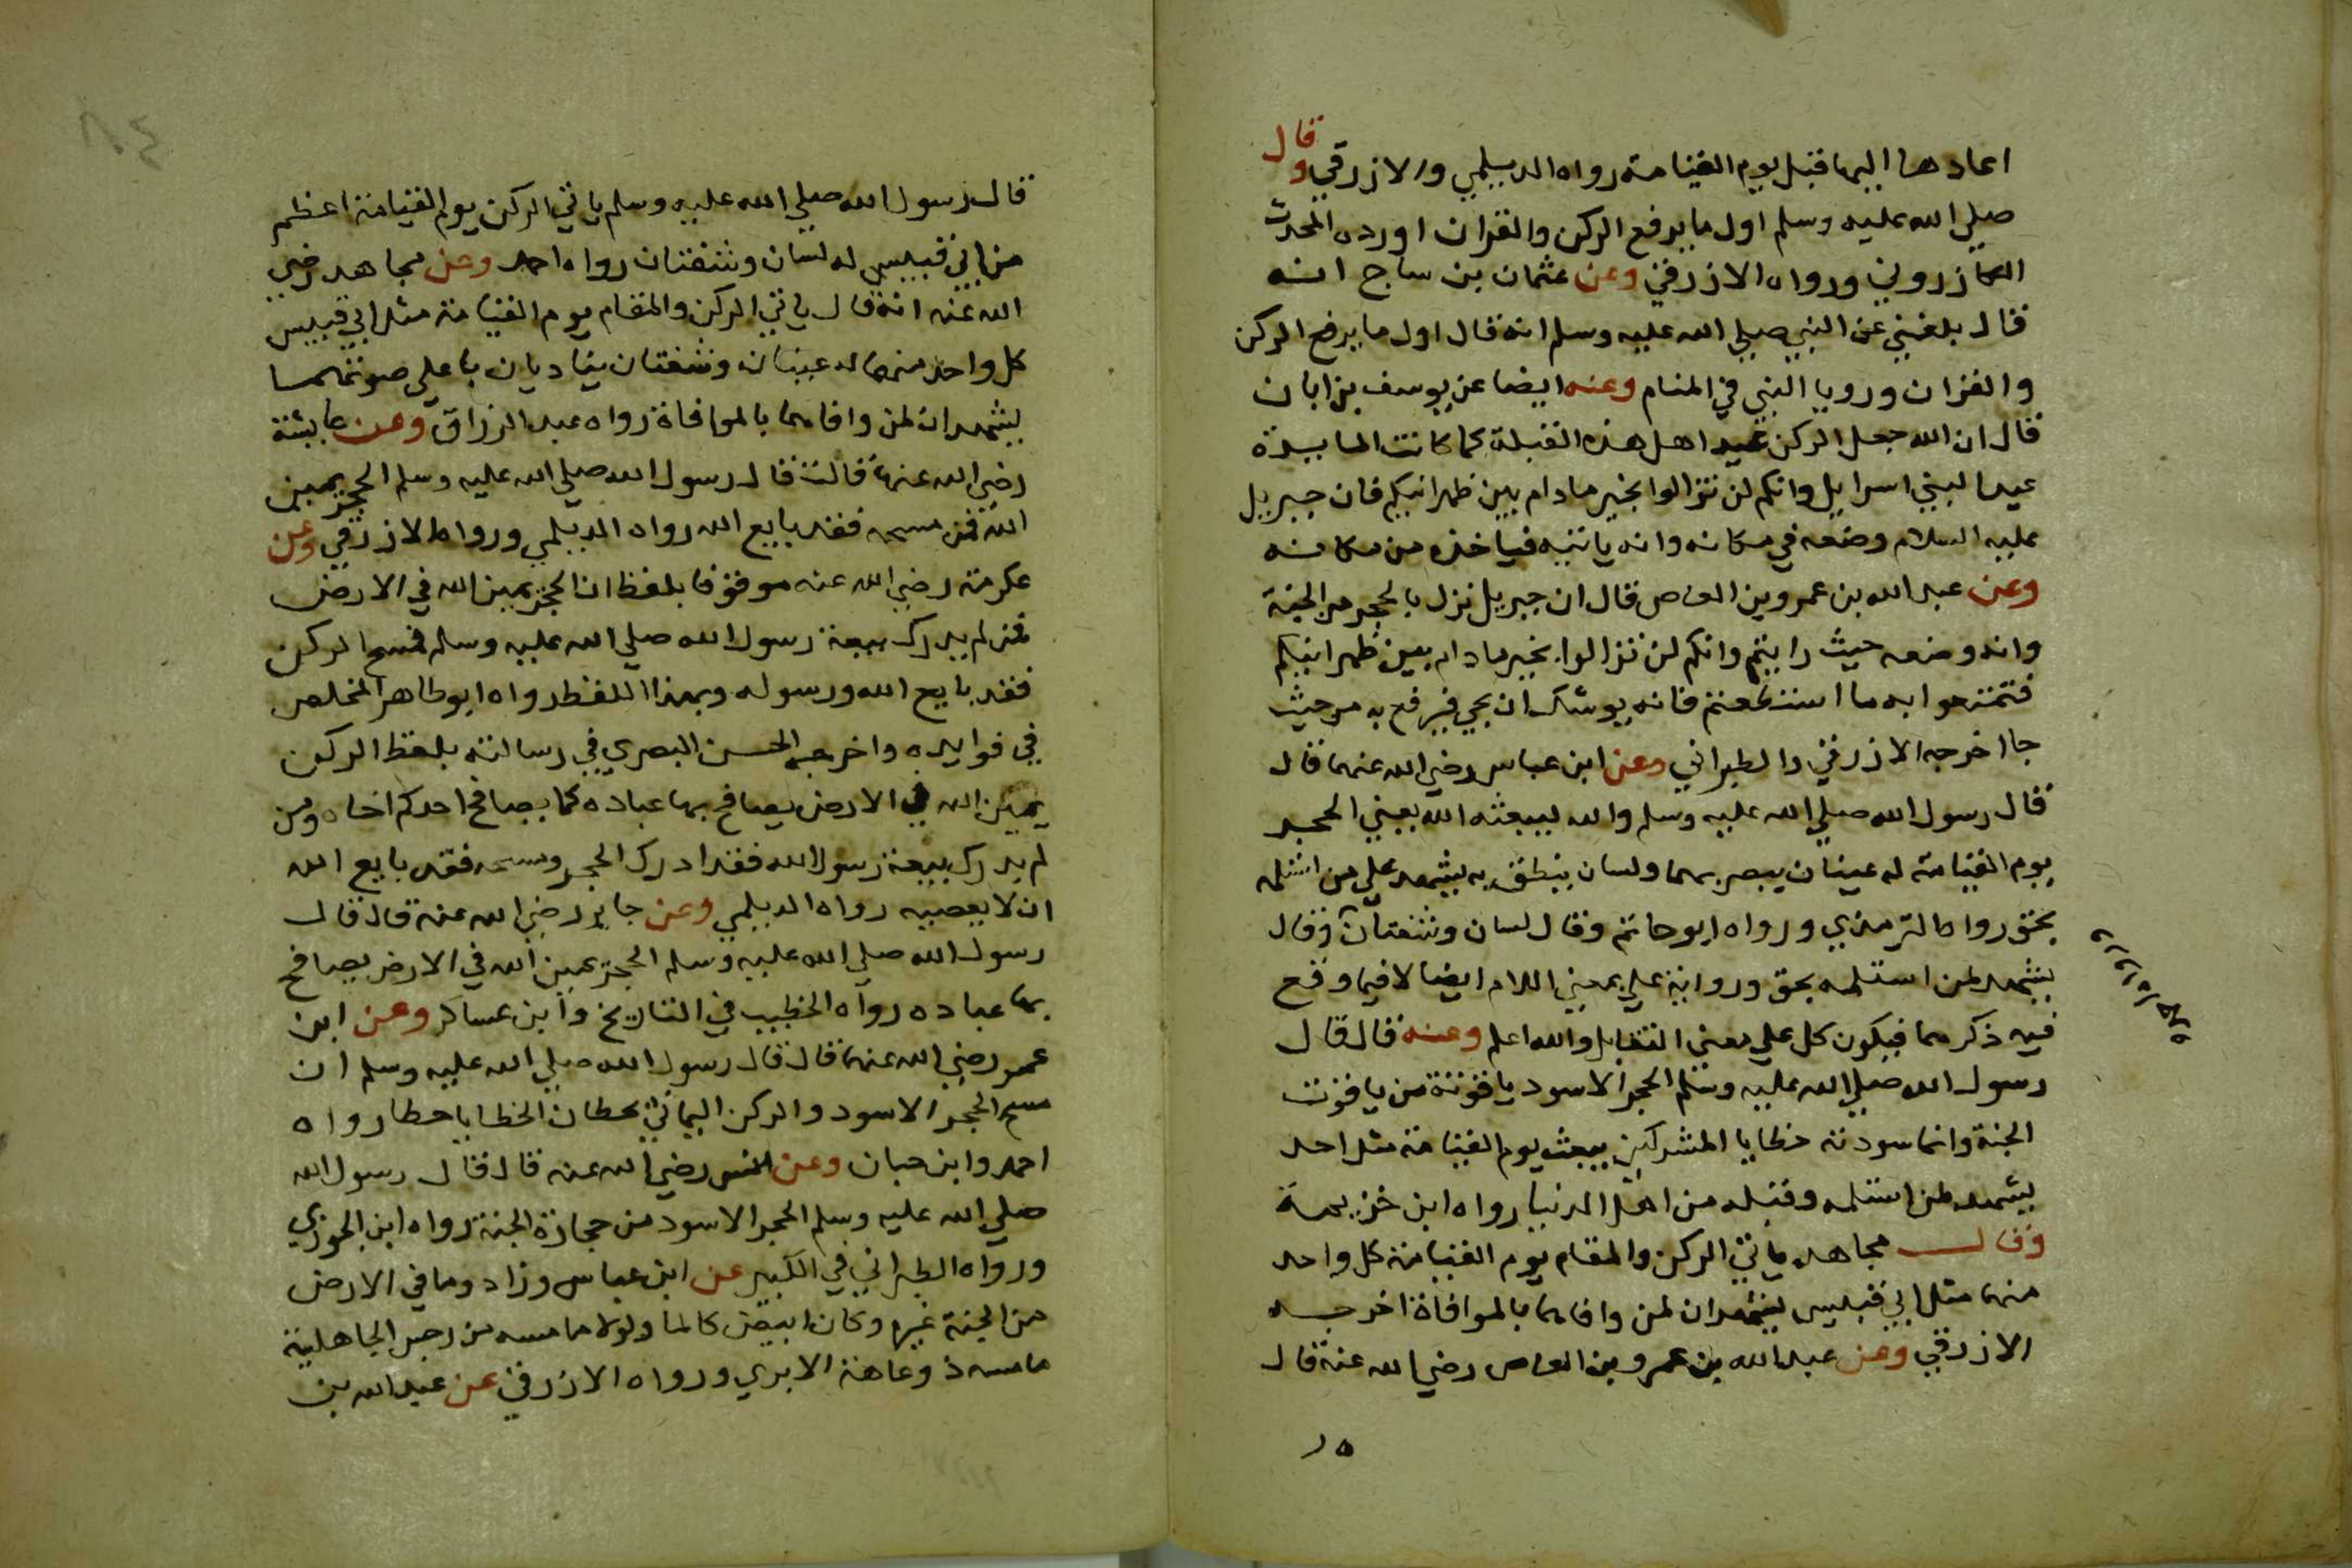 اعادها اليها قبل يوم القيامة رواه الديلمي والازرقي وقال
صلي الله عليه وسلم اول ما يرفع الركن والقران اورده المحدث
الكازروني ورواه الازرقي وعن عثمان بن ساج انه
قال بلغني عن النبي صلي الله عليه وسلم انه قال اول ما يرفع الركن
والقران ورويا النبي في المنام وعنه ايضا عن يوسف بن ابان
قال ان الله جعل الركن عيد اهل هذه القبلة كما كانت المايدة
عيدا لبني اسرايل وانكم لن تزالوا بخير مادام بين ظهرانيكم فان جبريل
عليه السلام وضعه في مكانه وانه ياتيه فياخذه من مكانه
وعن عبد الله بن عمرو بن العاص قال ان جبريل نزل بالحجر من الجنة
وانه وضعه حيث رايتم وانكم لن تزالوا بخير مادام بين ظهرانيكم
فتمتعوا به ما استطعتم فانه يوشك ان يجي فيرفع به من حيث
جا اخرجه الازرقي والطبراني وعن ابن عباس رضي الله عنهما قال
قال رسول الله صلي الله عليه وسلم والله ليبعثه الله يعني الحجر
يوم القيامة له عينان يبصر بهما ولسان ينطق به يشهد علي من استلمه
بحق رواه الترمذي ورواه ابو حاتم وقال لسان وشفتان وقال
يشهد لمن استلمه بحق ورواية علي بمعني اللام ايضا لا فيما وقع
فيه ذكرهما فيكون كل علي معني التقابل والله اعلم وعنه قال قال
رسول الله صلي الله عليه وسلم الحجر الاسود ياقوتة من ياقوت
الجنة وانما سودته خطايا المشركين يبعث يوم القيامة مثل احد
يشهد لمن استلمه وقبله من اهل الدنيا رواه ابن خزيمة
وقال مجاهد ياتي الركن والمقام يوم القيامة كل واحد
منهما مثل ابي قبيس يشهدان لمن وافاهما بالموافاة اخرجه
الازرقي وعن عبد الله بن عمرو بن العاص رضي الله عنه قال
١٥
قال رسول الله صلي الله عليه وسلم ياتي الركن يوم القيامة اعظم
من ابي قبيس له لسان وشفتان رواه احمد وعن مجاهد رضي
الله عنه انه قال ياتي الركن والمقام يوم القيامة مثل ابي قبيس
كل واحد منهما له عينان وشفتان يناديان باعلي صوتهما
يشهدان لمن وافاهما بالموافاة رواه عبد الرزاق وعن عايشة
رضي الله عنها قالت قال رسول الله صلي الله عليه وسلم الحجر يمين
الله فمن مسحه فقد بايع الله رواه الديلمي ورواه الازرقي وعن
عكرمة رضي الله عنه موقوفا بلفظ ان الحجر يمين الله في الارض
فمن لم يدرك بيعة رسول الله صلي الله عليه وسلم فمسح الركن
فقد بايع الله ورسوله وبهذا اللفظ رواه ابو طاهر المخلص
في فوايده واخرجه الحسن البصري في رسالته بلفظ الركن
يمين الله في الارض يصافح بها عباده كما يصافح احدكم اخاه ومن
لم يدرك بيعة رسول الله فقد ادرك الحجر ومسحه فقد بايع الله
ان لا يعصيه رواه الديلمي وعن جابر رضي الله عنه قال قال
رسول الله صلي الله عليه وسلم الحجر يمين الله في الارض يصافح
بها عباده رواه الخطيب في التاريخ وابن عساكر وعن ابن
عمر رضي الله عنهما قال قال رسول الله صلي الله عليه وسلم ان
مسح الحجر الاسود والركن اليماني يحطان الخطايا حطا رواه
احمد وابن حبان وعن انس رضي الله عنه قال قال رسول الله
صلي الله عليه وسلم الحجر الاسود من حجارة الجنة رواه ابن الجوزي
ورواه الطبراني في الكبير عن ابن عباس وزاد وما في الارض
من الجنة غيره وكان ابيض كالما ولولا ما مسه من رجس الجاهلية
ما مسه ذو عاهة الا بري ورواه الازرقي عن عبد الله بن